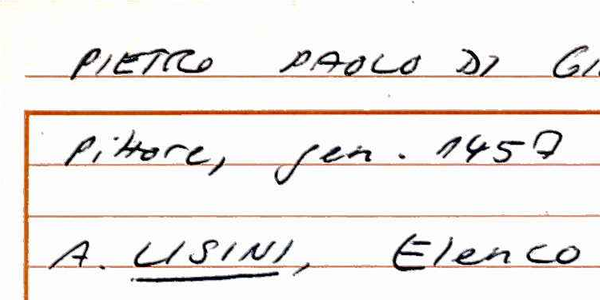 PIETRO PAOLO DI
Pittore, gen. 1457
A. LISINI, Elenco